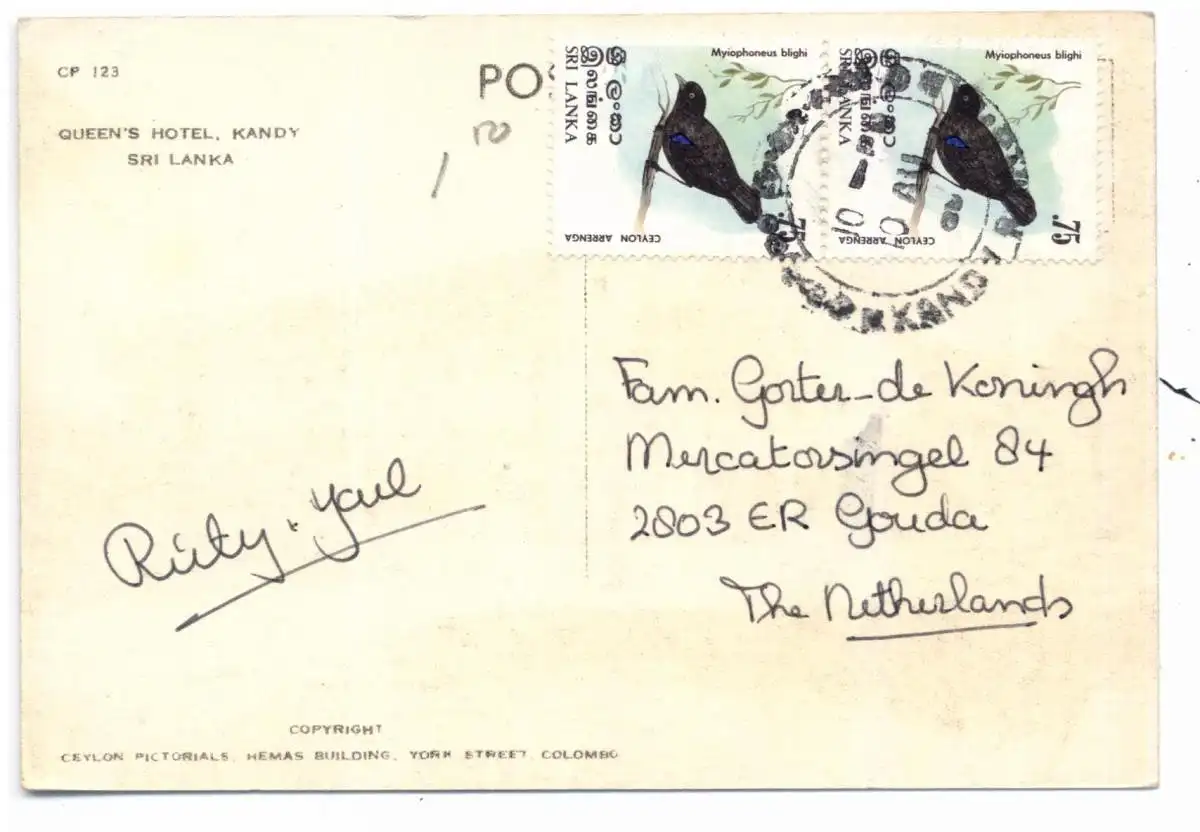 CP 123
QUEEN'S HOTEL, KANDY
SRI LANKA
PO
10
ශ්‍රී ලංකා
இலங்கை
SRI LANKA
Myiophoneus blighi
CEYLON ARRENGA
.75
ශ්‍රී ලංකා
இலங்கை
SRI LANKA
Myiophoneus blighi
CEYLON ARRENGA
.75
KANDY
Fam. Gorter-de Koningh
Mercatorsingel 84
2803 ER Gouda
The Netherlands
COPYRIGHT
CEYLON PICTORIALS, HEMAS BUILDING, YORK STREET, COLOMBO